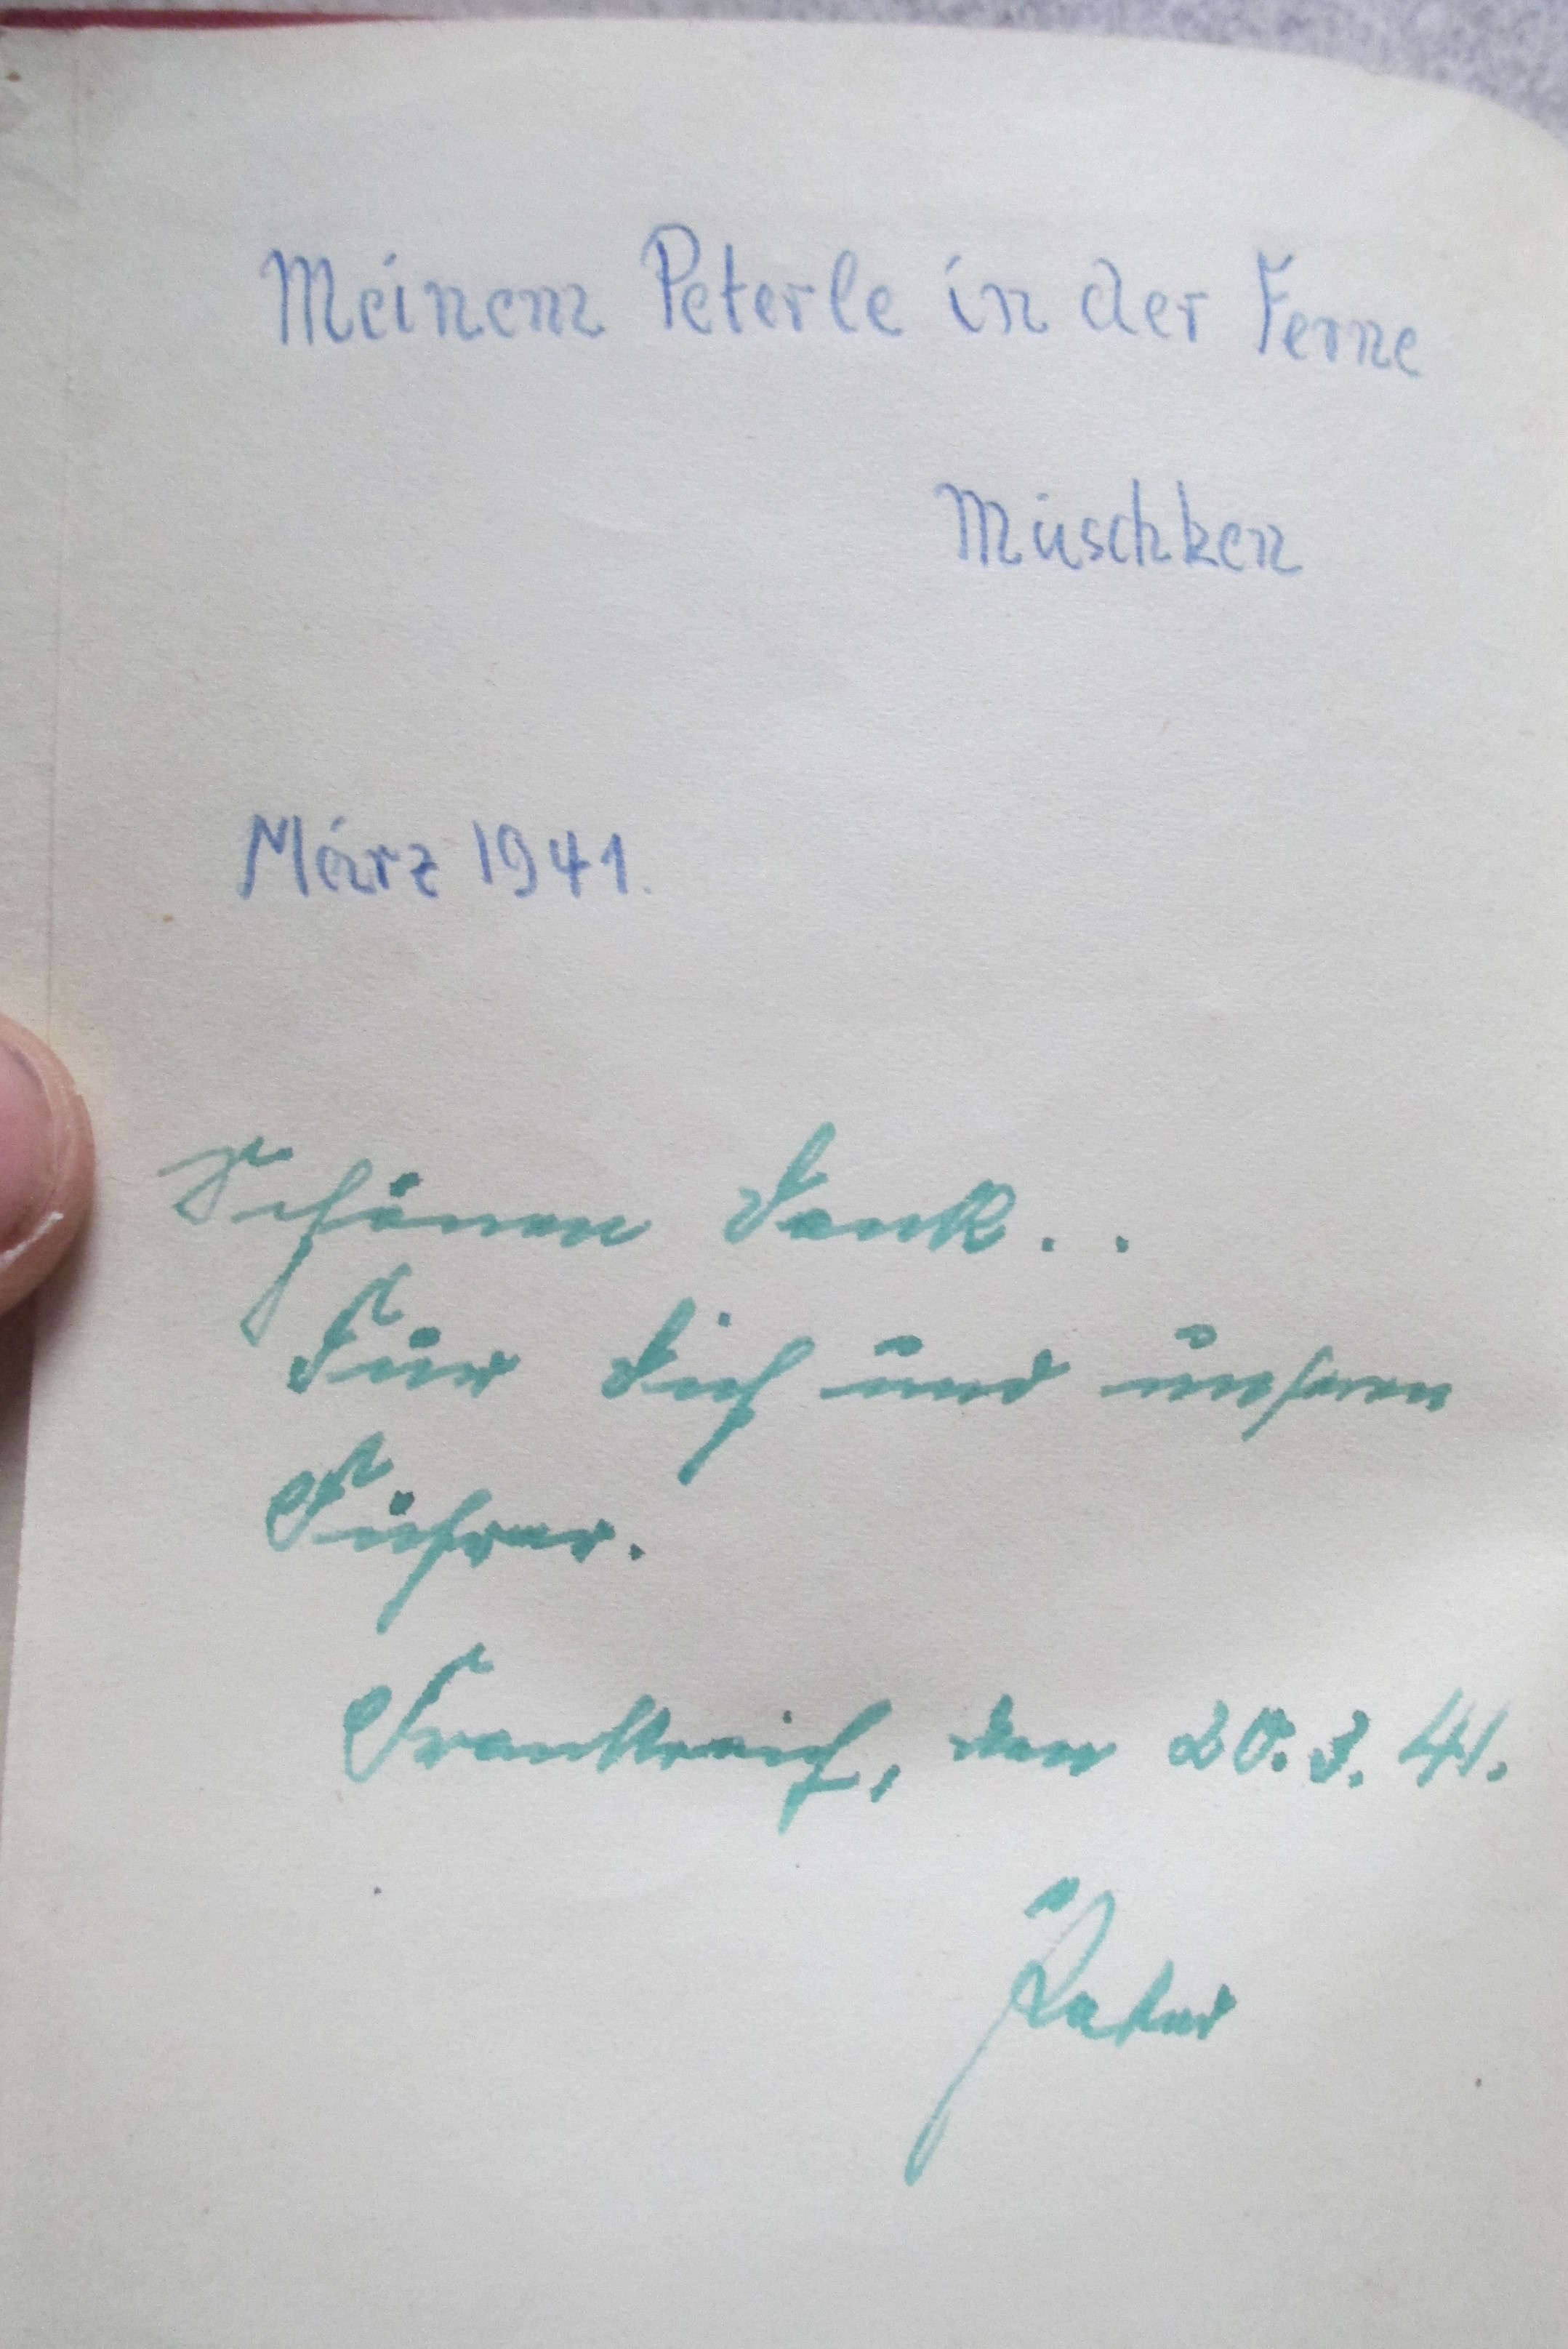 Meinem Peterle in der Ferne
Müschken
März 1941.
Schönen Dank..
Für Dich und unseren
Führer.
Frankreich, den 20.3.41.
Peter